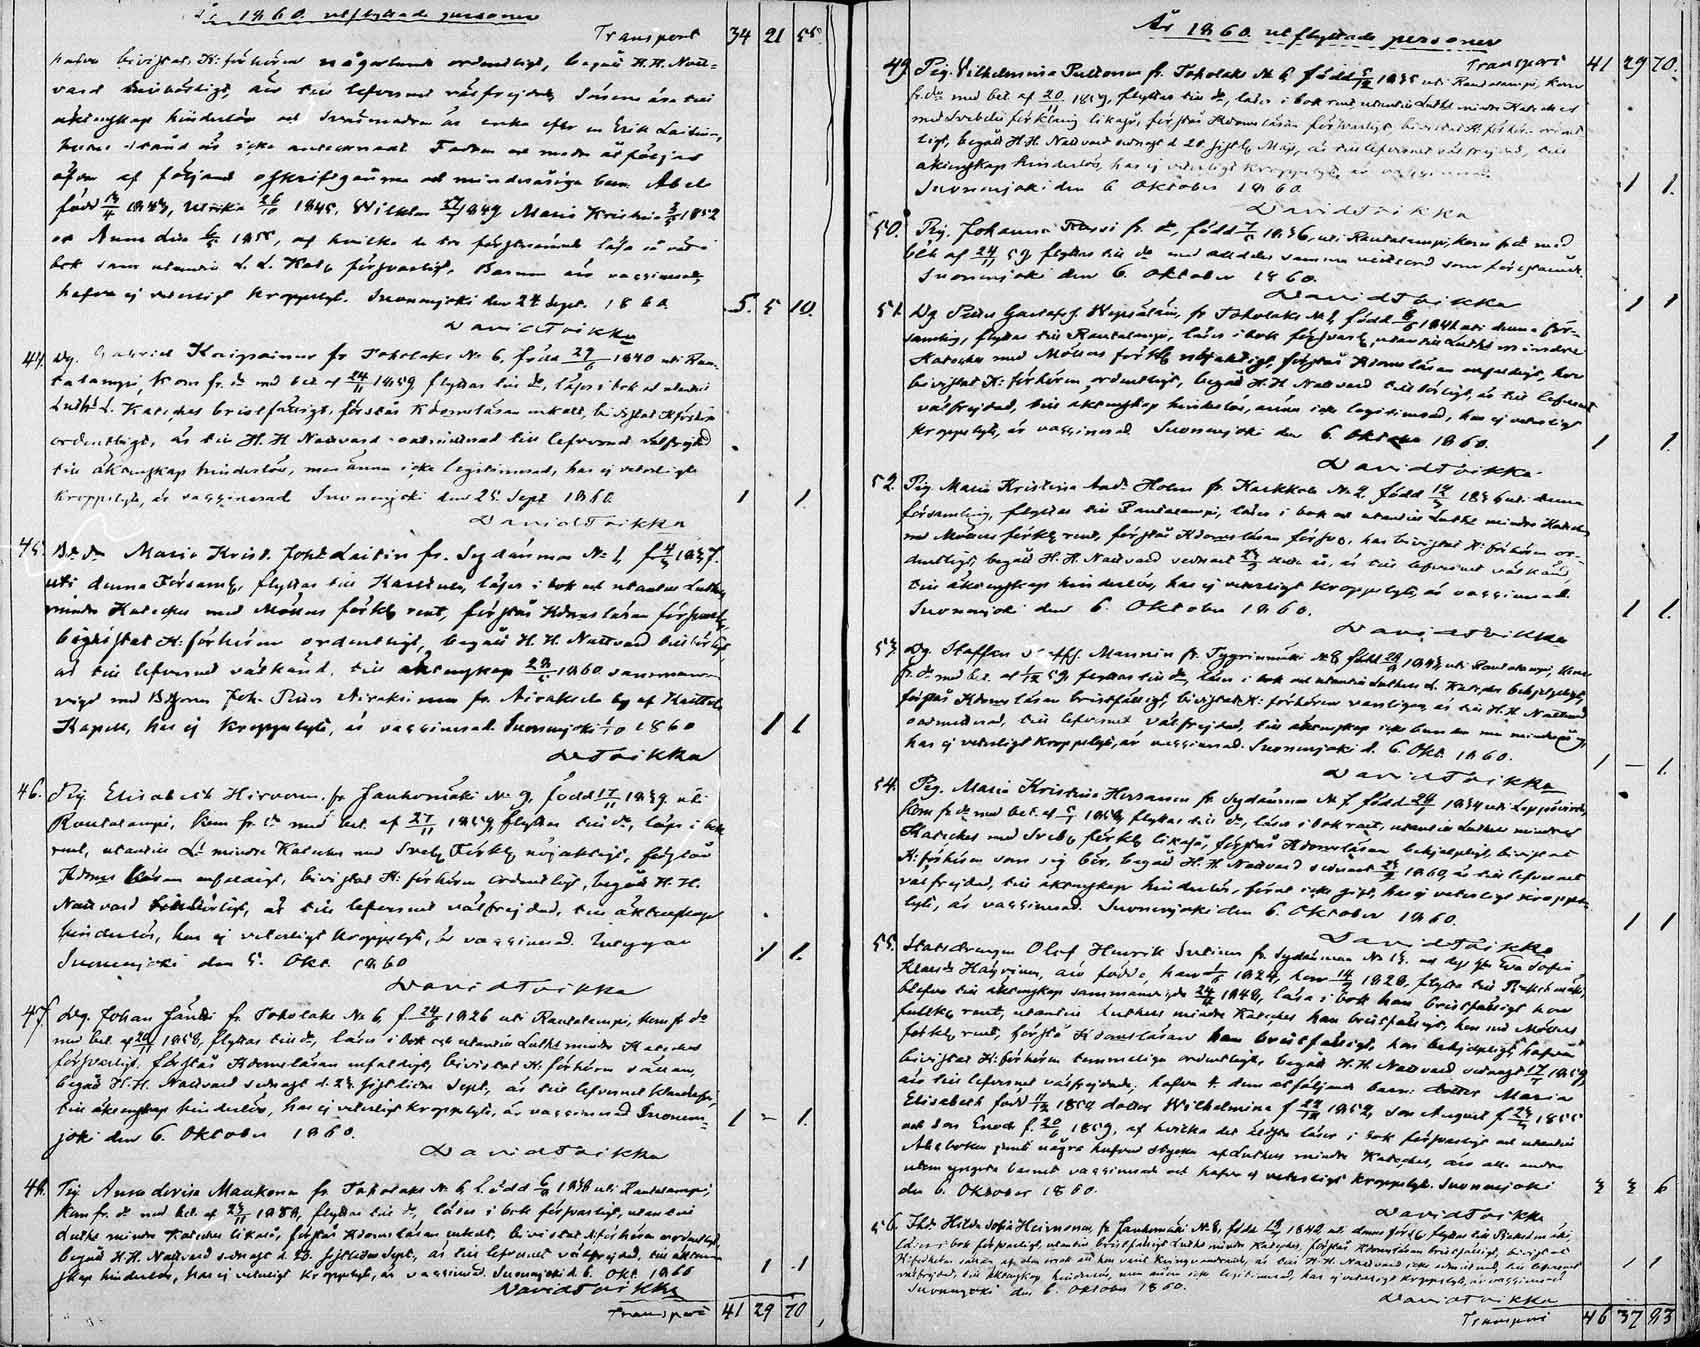 År 1860. utflyttade personer
Transport 34 21 55.
hafva bivistat K: förhören någorlunda ordentligt, begått H. H. Natt-
vard behörigt, äro till lefvernet välfrejdade
äktenskap hinderlös och är enka efter Erik Laitinen,
icke antecknad Fadren och modren åtföljas
af följande och minderåriga barn Abel
född 1843, Ulrika 26/10 1845, Wilhelm 27/7 1849 Maria Kristina 1852
och Anna Lisa 1855, af hvilka de tre förstnämnde läsa
bok samt utantill L. L. Kat. försvarligt, Barnen äro vaccinerade,
hafva ej veterligt kroppslyte. Suonenjoki den 24 Sept. 1860. 5. 5 10.
David Toikka
44. Dg. Gabriel Knipainen fr. Toholaks No 6, född 29/6 1840 uti Rau-
talampi kom fr. do med bet. af 24/11 1859 flyttas till do, läser i bok och utantill
Luth: L. Kateches bristfälligt, förstår Kdomsläran enkelt, bivistat Kförhör
ordentligt, är till H. H. Nattvard oadmitterad till lefvernet välfrejdad
till äktenskap hinderlös, men ännu icke legitimerad, har ej veterligt
kroppslyte, är vaccinerad Suonenjoki den 25. Sept 1860. 1 1.
David Toikka
45. Maria Krist. Joh:dr Laitin fr. Sydänmaa No 1, f 1837.
uti denna Församl., flyttas till Karttula, läser i bok och utantill Luthers
mindre Kateches med Möllers förkl. rent, förstår Kdomsläran försvarl.,
bivistat K: förhören ordentligt, begått H. H. Nattvard behörigt,
är till lefvernet välkänd, till äktenskap 1860 samman-
vigd med Bdson Joh. Airaksinen fr. Airaksela by af Karttula
Kapell, har ej kroppslyte, är vaccinerad Suonenjoki 1/10 1860 1 1
D Toikka
46. Pig. Elisabeth Hirvonen fr. Jauhomäki No 9, född 17/11 1839 uti
Rautalampi, kom fr. do med bet. af 27/11 1859, flyttas till do, läser i bok
rent, utantill L: mindre Kateches med Sveb. Förkl. nöjaktigt, förstår
Kdoms läran enfaldigt, bivistat K: förhören ordentligt, begått H. H.
Nattvard behörigt, är till lefvernet välfrejdad, till äktenskap
hinderlös, har ej veterligt kroppslyte, är vaccinerad.
Suonenjoki den 5. Okt. 1860 1 1.
David Toikka
47. Dg. Johan Jäntti fr. Toholaks No 6, f 24/6 1826 uti Rautalampi, kom fr do
med bet. af 1859, flyttas till do, läser i bok och utantill Luths mindre Kateches
försvarligt, förstår Kdomsläran enfaldigt, bivistat K: förhören sällan,
begått H. H. Nattvard senast d. 23. sistlidne Sept, är till lefvernet
till äktenskap hinderlös, har ej veterligt kroppslyte, är vaccinerad Suonen- 1 – 1.
joki den 6. Oktober 1860.
David Toikka
48. Pig. Anna Lovisa Maukonen fr. Toholaks No 6, född 1838 uti Rautalampi,
kom fr. do med bet. af 1859, flyttas till do, läser i bok försvarligt, utantill
Luths mindre Kateches likaså, förstår Kdomsläran enkelt, bivistat Kförhören ordentligt
begått H. H. Nattvard senast d. 23. sistlidne Sept, är till lefvernet välfrejdad, till äkten-
skap hinderlös, har ej veterligt kroppslyte, är vaccinerad. Suonenjoki d. 6. Okt. 1860 1 1
David Toikka
Transport 41 29 70
År 1860. utflyttade personer
Transport 41 29 70.
49. Pig. Wilhelmina Pulkonen fr. Toholaks No 6 född 1835 uti Rautalampi, kom
fr. do med bet. af 20/11 1859, flyttas till do, läser i bok rent, utantill Luths mindre Kateches
med Svebelii förklaring likaså, förstår Kdomsläran försvarligt, bivistat K: förhör ordent-
ligt, begått H. H. Nattvard senast d 28 sistl. Maj, är till lefvernet välfrejdad, till
äktenskap hinderlös, har ej veterligt kroppslyte, är vaccinerad. 1 1.
Suonenjoki den 6 Oktober 1860
David Toikka
50. Pig. Johanna Rossi fr. do, född 1836, uti Rautalampi, kom fr do med
bet. af 24/11 59 flyttas till do med alldeles samma vitsord som föregående.
Suonenjoki den 6. Oktober 1860. 1 1
David Toikka
51. Dg Petter Gustafs. Wepsäläin, fr. Toholaks No 9, född 1841 uti denna för-
samling, flyttas till Rautalampi, läser i bok försvarl. utantill Luths mindre
Kateches med Möllers förkl. nöjaktigt, förstår Kdomsläran enfaldigt, har
bivistat K: förhören ordentligt, begått H. H. Nattvard behörigt, är till lefvernet
välfrejdad, till äktenskap hinderlös, ännu icke legitimerad, har ej veterligt
kroppslyte, är vaccinerad. Suonenjoki den 6. Oktober 1860. 1 1.
David Toikka
52. Pig. Maria Kristina And: Holm fr. Karkkola No 2, född 1836 uti denna
församling, flyttas till Rautalampi, läser i bok och utantill Luths mindre Kateches
med Möllers förkl. rent, förstår Kdomsläran försv., har bivistat K: förhören or-
dentligt, begått H. H. Nattvard senast detta år, är till lefvernet välkänd,
till äktenskap hinderlös, har ej veterligt kroppslyte, är vaccinerad.
Suonenjoki den 6. Oktober 1860. 1 1.
David Toikka
53. Dg. Staffan Staffs. Manninen fr. Tyyrinmäki No 8 född 1843, uti Rautalampi, kom
fr. do med bet. af 59, flyttas till do, läser i bok och utantill Luthers L. Kateches behjelpligt,
förstår Kdomsläran bristfälligt, bivistat K: förhören vanligen, är till H. H. Nattvard
oadmitterad, till lefvernet välfrejdad, till äktenskap icke
har ej veterligt kroppslyte, är vaccinerad. Suonenjoki d. 6. Okt. 1860. 1 – 1.
David Toikka
54. Pig. Maria Kristina Hirsonen fr. Sydänmaa No 7, född 1834 uti Leppävirta,
kom fr do med bet. af 1859, flyttas till do, läser i bok rent, utantill Luthers mindre
Kateches med Sveb. förkl. likaså, förstår Kdomsläran behjelpligt, bivistat
K: förhören som sig bör, begått H. H. Nattvard senast 1860, är till lefvernet
välfrejdad, till äktenskap hinderlös, förut icke gift, har ej veterligt kropps-
lyte, är vaccinerad. Suonenjoki den 6. Oktober 1860. 1 1
David Toikka
55. Statsdrengen Olof Henrik Sutinen fr. Sydänmaa No 13. och dess h:u Eva Sofia
Klasdr Häyrinen, äro födde, han 1824, hon 14/ 1828, flytta till Pieksämäki,
blefvo till äktenskap sammanvigde 1848, läsa i bok han bristfälligt hon
fullt rent, utantill Luthers mindre Kateches han bristfälligt, hon med Möllers
förkl. rent, förstå Kdomsläran han bristfälligt, hon behjelpligt, hafva
bivistat K: förhören temmeligen ordentligt, begått H. H. Nattvard senast 1859,
äro till lefvernet välfrejdade, hafva 4. dem åtföljande barn: dotter Maria
Elisabeth född 1850 dotter Wilhelmina f 1852, son August f. 1855
och son Enock f. 1859, af hvilka det äldsta läser i bok försvarligt och utantill
Abcboken jemte några hufvud stycken af Luthers mindre Kateches, äro alla andra
utom yngsta barnet vaccinerade och hafva ej veterligt kroppslyte. Suonenjoki
den 6. Oktober 1860. 3 3 6
David Toikka
56. Ihdr Hilda Sofia Heimonen, fr. Jauhomäki No 8, född 1842 uti denna förs. flyttas till Pieksämäki,
läser i bok försvarligt, utantill bristfälligt Luths mindre Kateches, förstår Kdomsläran bristfälligt, bivistat
K: förhören sällan af den orsak att hon varit kringvandrande, är till H. H. Nattvard icke admitterad, till lefvernet
välfrejdad, till äktenskap hinderlös, men ännu icke legitimerad, har ej veterligt kroppslyte, är vaccinerad 1 1
Suonenjoki den 6. Oktober 1860.
David Toikka
Transport 46 37 83